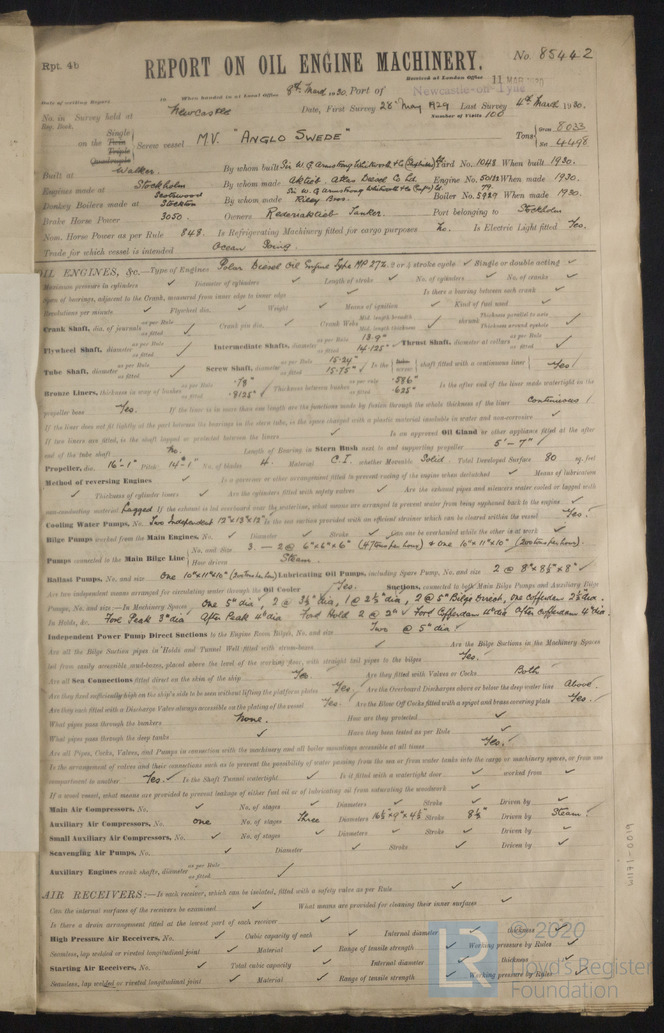 Rpt. 4b
REPORT ON OIL ENGINE MACHINERY.
No. 85442
Received at London Office 11 MAR 1930
Date of writing Report 19 When handed in at Local Office 8th March 1930 Port of Newcastle-on-Tyne
No. in Reg. Book. Survey held at Newcastle Date, First Survey 28th May 1929 Last Survey 4th March 1930.
Number of Visits 100
on the Single Twin Triple Quadruple Screw vessel MV. "ANGLO SWEDE" Tons Gross 8033 Net 4498
Built at Walker. By whom built Sir W. G. Armstrong Whitworth & Co Yard No. 1048. When built 1930.
Engines made at Stockholm By whom made Aktieb. Atlas Diesel Co Ltd Engine No. When made 1930.
Donkey Boilers made at Scotswood Stockton By whom made Sir W. G. Armstrong Whitworth & Co Riley Bros. Boiler No. 79. 5929 When made 1930.
Brake Horse Power 3050. Owners Port belonging to Stockholm
Nom. Horse Power as per Rule 848. Is Refrigerating Machinery fitted for cargo purposes No. Is Electric Light fitted Yes.
Trade for which vessel is intended Ocean Going.
OIL ENGINES, &c.—Type of Engines Polar Diesel Oil Engine Type 2 or 4 stroke cycle Single or double acting
Maximum pressure in cylinders Diameter of cylinders Length of stroke No. of cylinders No. of cranks
Span of bearings, adjacent to the Crank, measured from inner edge to inner edge Is there a bearing between each crank
Revolutions per minute Flywheel dia. Weight Means of ignition Kind of fuel used
Crank Shaft, dia. of journals as per Rule as fitted Crank pin dia. Crank Webs Mid. length breadth Mid. length thickness shrunk Thickness parallel to axis Thickness around eyehole
Flywheel Shaft, diameter as per Rule as fitted Intermediate Shafts, diameter as per Rule 13.9" as fitted 14.125" Thrust Shaft, diameter at collars as per Rule as fitted
Tube Shaft, diameter as per Rule as fitted Screw Shaft, diameter as per Rule 15.24" as fitted 15.75" Is the shaft fitted with a continuous liner Yes
Bronze Liners, thickness in way of bushes as per Rule .78" as fitted .8125" Thickness between bushes as per rule .586" as fitted .625" Is the after end of the liner made watertight in the
propeller boss Yes. If the liner is in more than one length are the junctions made by fusion through the whole thickness of the liner Continuous
If the liner does not fit tightly at the part between the bearings in the stern tube, is the space charged with a plastic material insoluble in water and non-corrosive
If two liners are fitted, is the shaft lapped or protected between the liners Is an approved Oil Gland or other appliance fitted at the after
end of the tube shaft No. Length of Bearing in Stern Bush next to and supporting propeller 5'-7"
Propeller, dia. 16'-1" Pitch 14'-1" No. of blades 4. Material C.I. whether Moveable Solid. Total Developed Surface 80 sq. feet
Method of reversing Engines Is a governor or other arrangement fitted to prevent racing of the engine when declutched Means of lubrication
Thickness of cylinder liners Are the cylinders fitted with safety valves Are the exhaust pipes and silencers water cooled or lagged with
non-conducting material Lagged If the exhaust is led overboard near the waterline, what means are arranged to prevent water being syphoned back to the engine
Cooling Water Pumps, No. Two Independent 12"x13"x12" Is the sea suction provided with an efficient strainer which can be cleared within the vessel Yes.
Bilge Pumps worked from the Main Engines, No. Diameter Stroke Can one be overhauled while the other is at work
Pumps connected to the Main Bilge Line No. and Size 3. — 2 @ 6"x6"x6" (47 tons per hour) & one 10"x11"x10" (200 tons per hour). How driven Steam.
Ballast Pumps, No. and size One 10"x11"x10" (200 tons per hour) Lubricating Oil Pumps, including Spare Pump, No. and size 2 @ 8"x8½"x8"
Are two independent means arranged for circulating water through the Oil Cooler Yes. Suctions, connected to both Main Bilge Pumps and Auxiliary Bilge
Pumps, No. and size:—In Machinery Spaces One 5" dia, 2 @ 3½" dia, 1 @ 2½" dia, 2 @ 5" Bilge Direct, one Cofferdam 2½" dia.
In Holds, &c. Fore Peak 3" dia After Peak 4" dia Ford Hold 2 @ 2" Ford Cofferdam 4" dia After Cofferdam 4" dia.
Independent Power Pump Direct Suctions to the Engine Room Bilges, No. and size Two @ 5" dia
Are all the Bilge Suction pipes in Holds and Tunnel Well fitted with strum-boxes Are the Bilge Suctions in the Machinery Spaces
led from easily accessible mud-boxes, placed above the level of the working floor, with straight tail pipes to the bilges Yes.
Are all Sea Connections fitted direct on the skin of the ship Yes. Are they fitted with Valves or Cocks Both
Are they fixed sufficiently high on the ship's side to be seen without lifting the platform plates Yes Are the Overboard Discharges above or below the deep water line Above.
Are they each fitted with a Discharge Valve always accessible on the plating of the vessel Yes. Are the Blow Off Cocks fitted with a spigot and brass covering plate Yes.
What pipes pass through the bunkers None. How are they protected
What pipes pass through the deep tanks Have they been tested as per Rule
Are all Pipes, Cocks, Valves, and Pumps in connection with the machinery and all boiler mountings accessible at all times Yes.
Is the arrangement of valves and their connections such as to prevent the possibility of water passing from the sea or from water tanks into the cargo or machinery spaces, or from one
compartment to another Yes. Is the Shaft Tunnel watertight Is it fitted with a watertight door worked from
If a wood vessel, what means are provided to prevent leakage of either fuel oil or of lubricating oil from saturating the woodwork
Main Air Compressors, No. No. of stages Diameters Stroke Driven by
Auxiliary Air Compressors, No. one No. of stages Three Diameters 16½"x9"x4½" Stroke 8½" Driven by Steam.
Small Auxiliary Air Compressors, No. No. of stages Diameters Stroke Driven by
Scavenging Air Pumps, No. Diameter Stroke Driven by
Auxiliary Engines crank shafts, diameter as per Rule as fitted
AIR RECEIVERS:—Is each receiver, which can be isolated, fitted with a safety valve as per Rule
Can the internal surfaces of the receivers be examined What means are provided for cleaning their inner surfaces
Is there a drain arrangement fitted at the lowest part of each receiver
High Pressure Air Receivers, No. Cubic capacity of each Internal diameter thickness
Seamless, lap welded or riveted longitudinal joint Material Range of tensile strength Working pressure by Rules
Starting Air Receivers, No. Total cubic capacity Internal diameter thickness
Seamless, lap welded or riveted longitudinal joint Material Range of tensile strength Working pressure by Rules
W1171-0019
LR © 2020
Lloyd's Register
Foundation